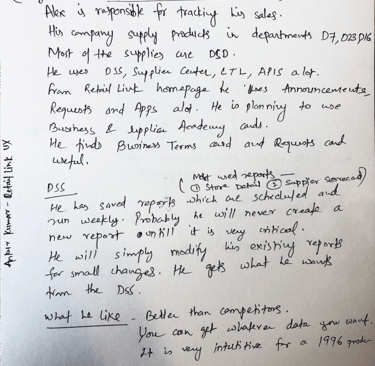 Alex is responsible for tracking his sales.
His company supply products in departments D7, D23, D16
Most of the supplies are DSD.
He uses DSS, Supplier Center, LTL, APIS a lot.
From Retail Link homepage he uses Announcements,
Requests and Apps alot. He is planning to use
Business & Supplier Academy cards.
He finds Business Terms card and Requests card
useful.
Most used reports —
DSS ( ① Store Detail ② Supplier Scorecard)
He has saved reports which are scheduled and
run weekly. Probably he will never create a
new report untill it is very critical.
He will simply modify his existing reports
for small changes. He gets what he wants
from the DSS.
What he like - Better than competitors.
You can get whatever data you want.
It is very intuitive for a 1996
Kumar - Retail Link UX